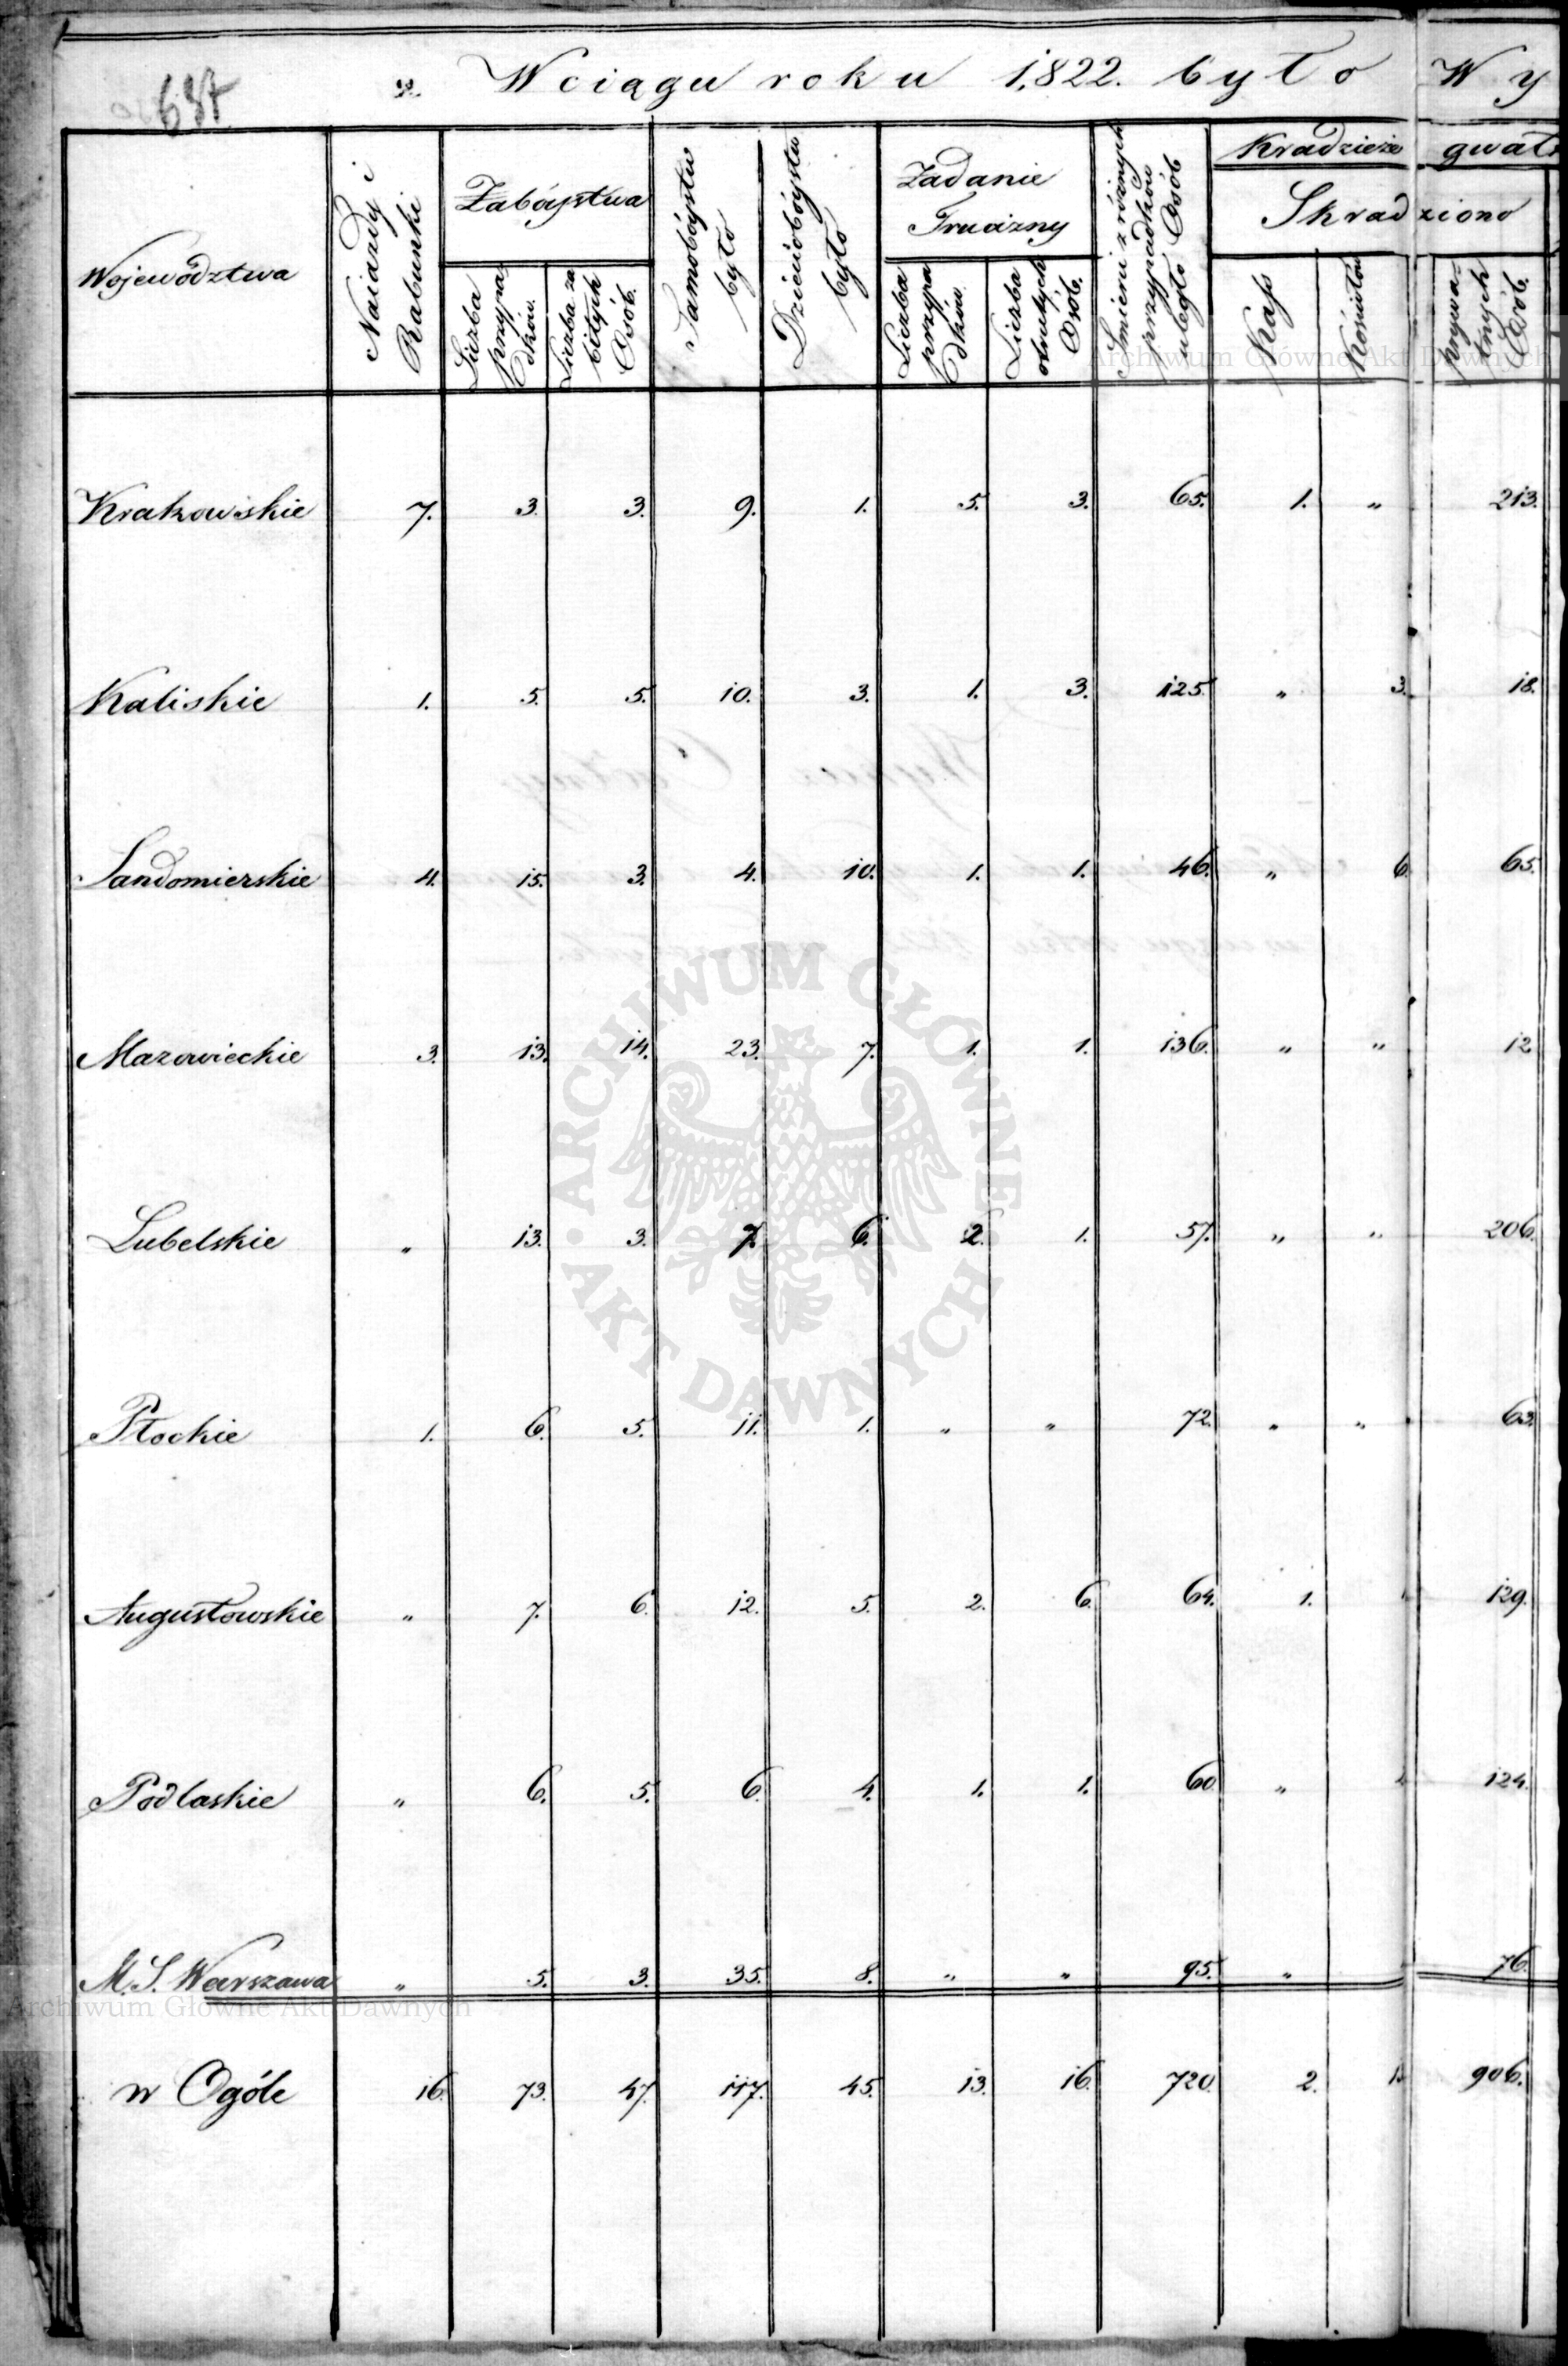 637
W ciągu roku 1,822. było Wy
Województwa
Naiazdy i Rabunki
Zabóystwa
Liczba przypadków
Liczba zabitych Osób.
Samobóystw było
Dzieciobóystw było
Zadanie Trucizny
Liczba przypadków
Liczba otrutych Osób.
Smierci z różnych przypadków uległo Osób
Kradzieże gwał
Skradziono
Kass
Kościołów
prywatnych Osób.
Krakowskie 7. 3. 3. 9. 1. 5. 3. 65. 1. „ 213.
Kaliskie 1. 5. 5. 10. 3. 1. 3. 125. „ 3. 18.
Sandomierskie 4. 15. 3. 4. 10. 1. 1. 46. „ 6. 65.
Mazowieckie 3. 13. 14. 23. 7. 1. 1. 136. „ „ 12.
Lubelskie „ 13. 3. 7. 6. 2. 1. 57. „ „ 206.
Płockie 1. 6. 5. 11. 1. „ „ 72. „ „ 63.
Augustowskie „ 7. 6. 12. 5. 2. 6. 64. 1. 129.
Podlaskie „ 6. 5. 6. 4. 1. 1. 60. „ 124.
M. S. Warszawa „ 5. 3. 35. 8. „ „ 95. „ 76.
w Ogóle 16. 73. 47. 117. 45. 13. 16. 720. 2. 906.
Archiwum Główne Akt Dawnych
ARCHIWUM GŁÓWNE AKT DAWNYCH
Archiwum Główne Akt Dawnych